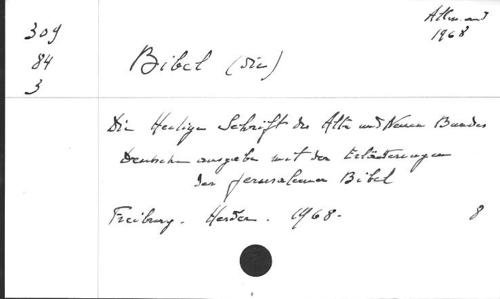 309
84
3
Allemand
1968
Bibel (die)
Die Heilige Schrift des Alten und Neuen Bundes
Deutsche ausgabe mit den Erläuterungen
der Jerusalemer Bibel
Freiburg. Herder. 1968. 8